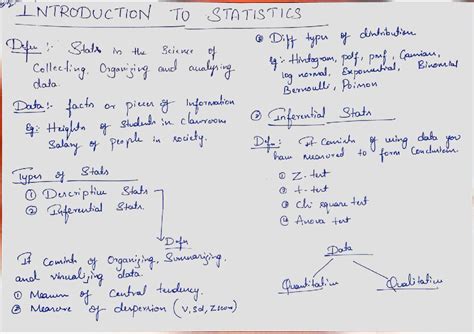 INTRODUCTION TO STATISTICS
Defn :- Stats is the Science of
Collecting, Organizing and analysing
data.
Data :- facts or pieces of Information
Eg:- Heights of Students in classroom
Salary of people in society.
Types of Stats
① Descriptive Stats
② Inferential Stats.
Defn
It consists of Organizing, Summarizing,
and visualizing data.
① Measure of Central tendency.
② Measure of dispersion (V, Sd, Zscore)
③ Diff types of distribution
eg:- Histogram, pdf, pmf, Gaussian,
log normal, Exponential, Binomial
Bernoulli, Poisson
② Inferential Stats
Defn:- It Consists of using data you
have measured to form Conclusion.
① Z-test
② t-test
③ Chi square test
④ Anova test
Data
Quantitative Qualitative